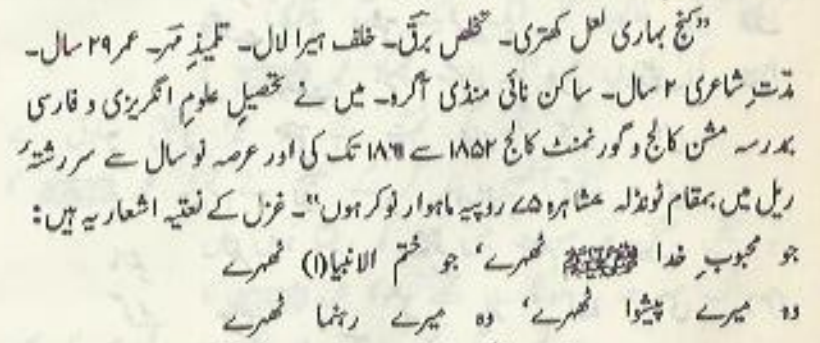 "کنج بہاری لعل کھتری۔ تخلص برق۔ خلف ہیرا لال۔ تلمیذِ مہر۔ عمر ۲۹ سال۔
مدّتِ شاعری ۲ سال۔ ساکن نائی منڈی آگرہ۔ میں نے تحصیلِ علومِ انگریزی و فارسی
بمدرسہ مشن کالج و گورنمنٹ کالج ۱۸۵۲ سے ۱۸۶۱ تک کی اور عرصہ نو سال سے سررشتۂ
ریل میں بمقام ٹونڈلہ مشاہرہ ۷۵ روپیہ ماہوار نوکر ہوں"۔ غزل کے نعتیہ اشعار یہ ہیں:
جو محبوبِ خدا ﷺ ٹھہرے' جو ختم الانبیا(۱) ٹھہرے
وہ میرے پیشوا ٹھہرے' وہ میرے رہنما ٹھہرے